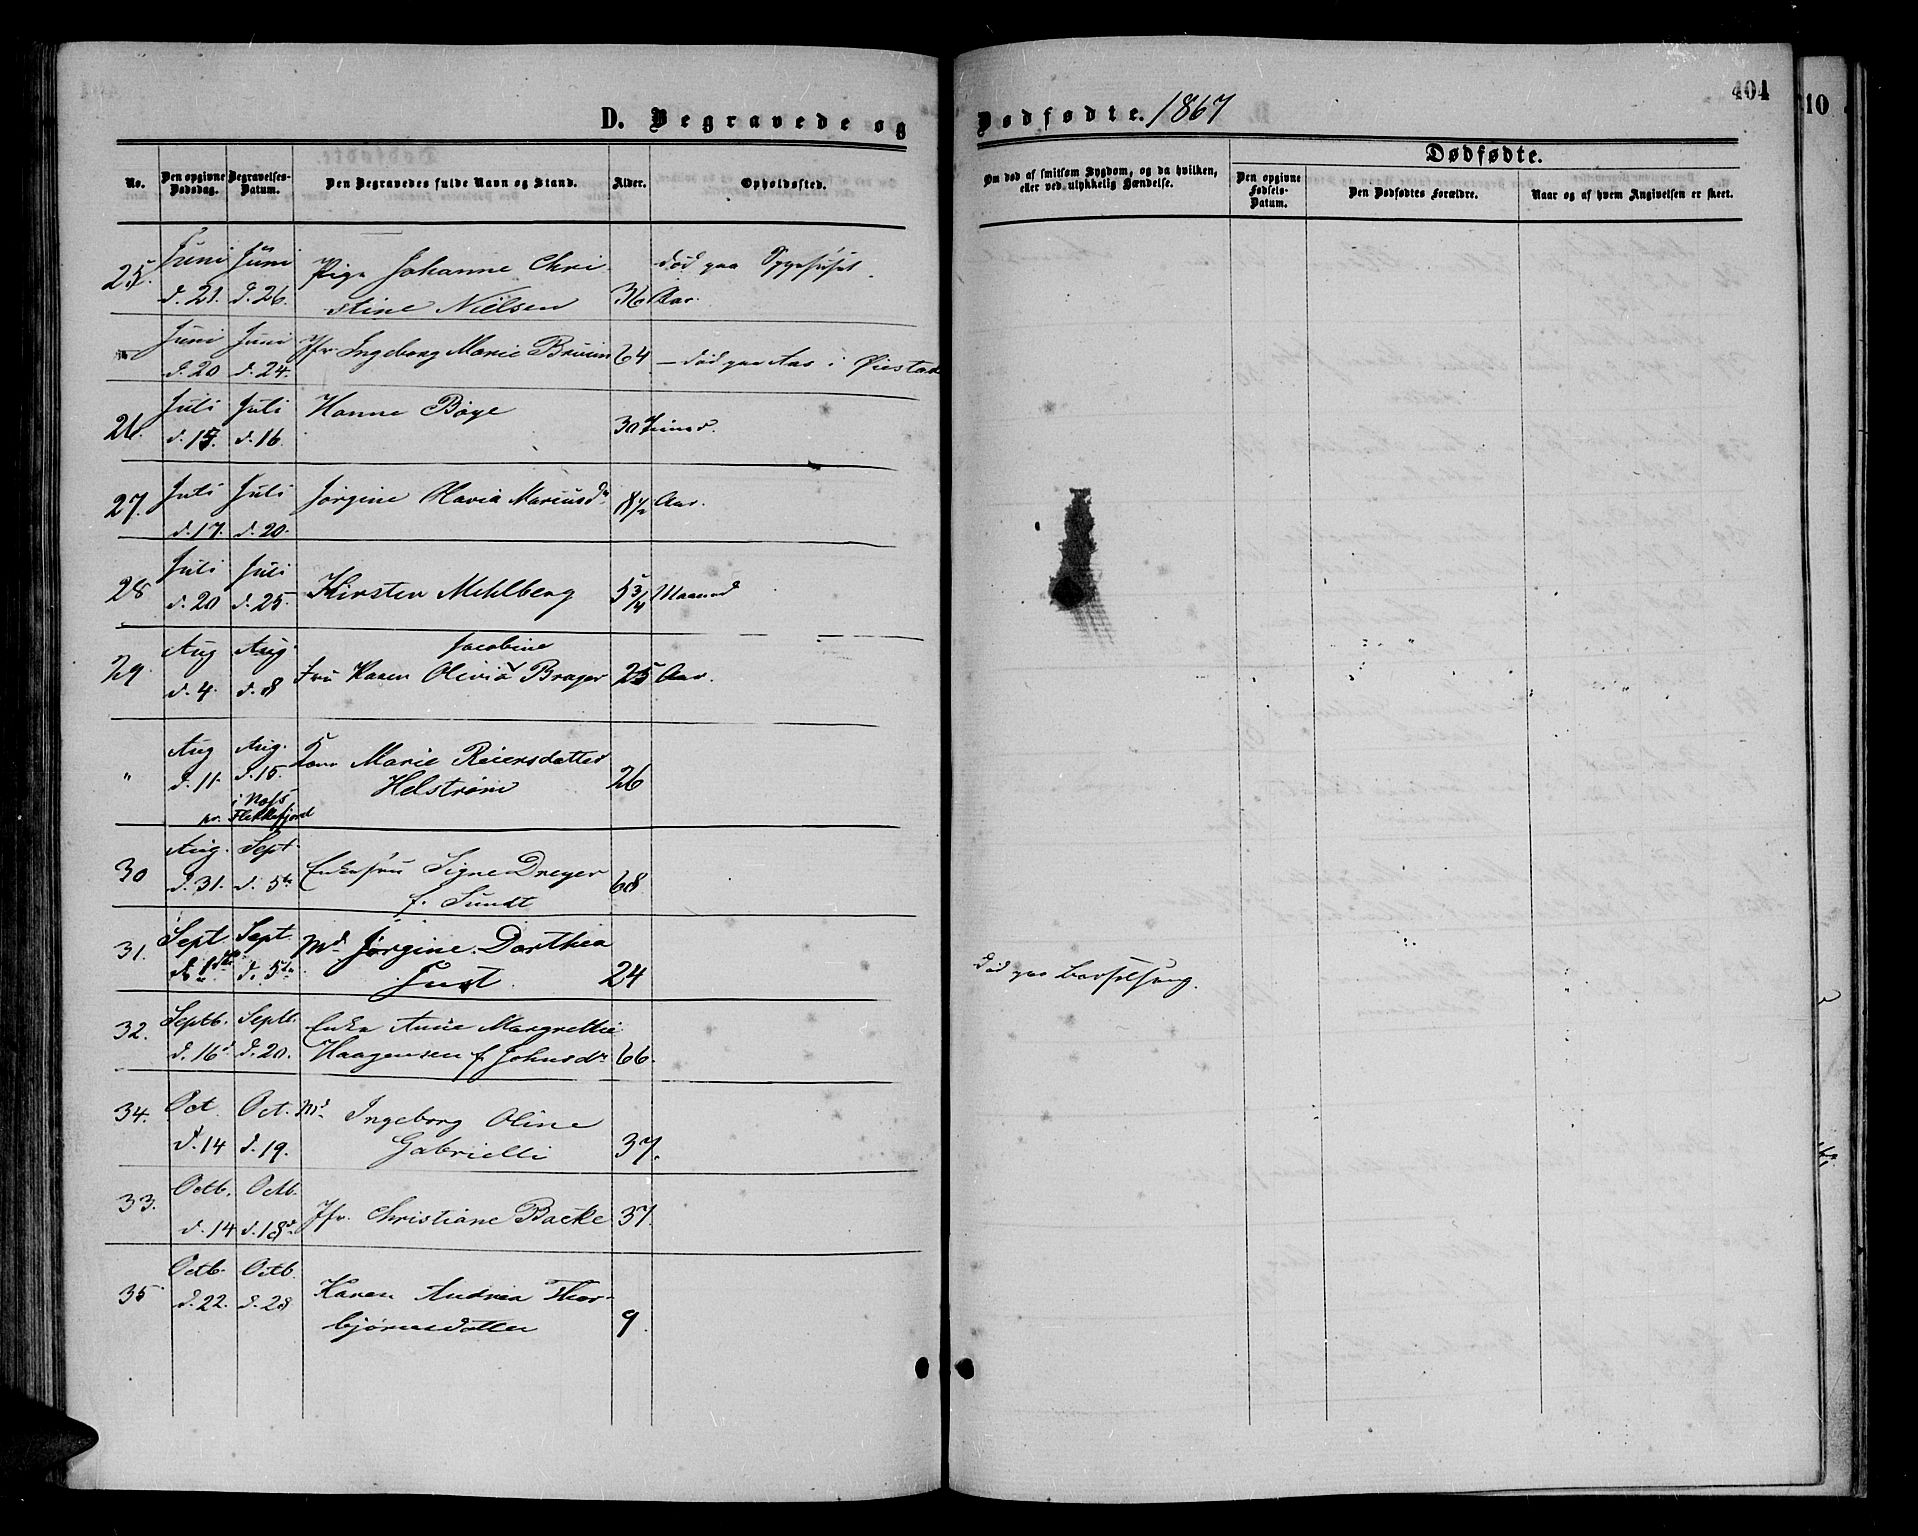 404
10
D. Begravede og
Dødfødte. 1867
No.
Den opgivne Dødsdag.
Begravelses-Datum.
Den Begravedes fulde Navn og Stand.
Alder.
Opholdssted.
Om død af smitsom Sygdom, og da hvilken, eller ved ulykkelig Hændelse.
Dødfødte.
Den opgivne Fødsels-Datum.
Den Dødfødtes Forældre.
Naar og af hvem Angivelsen er skeet.
25. Juni d. 21. Juni d. 26. Pige Johanne Chri-
stine Nielsen 36 Aar. død paa Sygehuset.
Juni d. 20 Juni d. 24. Jfr. Ingeborg Marie Bruun 64 – død paa Aas i Øiestad
26. Juli d. 15. Juli d. 16. Hanne Boye 30 Timer.
27. Juli d. 17. Juli d. 20. Jørgine Olavia Mariusdr 8 1/2 Aar.
28 Juli d. 20 Juli d. 25. Kirsten Mehlberg 5 3/4 Maaned
Jacobine
29. Aug d. 4. Aug. d. 8 Fru Karen Olivia Brager 25 Aar.
" Aug d. 11. Aug. d. 15. Kone Marie Reiersdatter
Helstrøm 26
i Næss
pr. Flekkefjord
30 Aug. d. 31. Sept. d. 5te Enkefru Signe Dreyer
f. Sundt 68
31. Sept. d. 1ste Sept. d. 5te Md. Jørgine Dorthea
Just. 24 Død paa Barselseng.
32. Septb. d. 16d Septb. d. 20. Enke Anne Margrethe
Haagensen f. Johnsdr 66.
34. Oct. d. 14 Oct. d. 19. Md. Ingeborg Oline
Gabrielli 37.
33. Octb. d. 14 Octb. d. 18de Jfr. Christiane Backe 37.
35 Octb. d. 22. Octb. d. 28 Karen Andrea Thor-
bjørnsdatter 9.